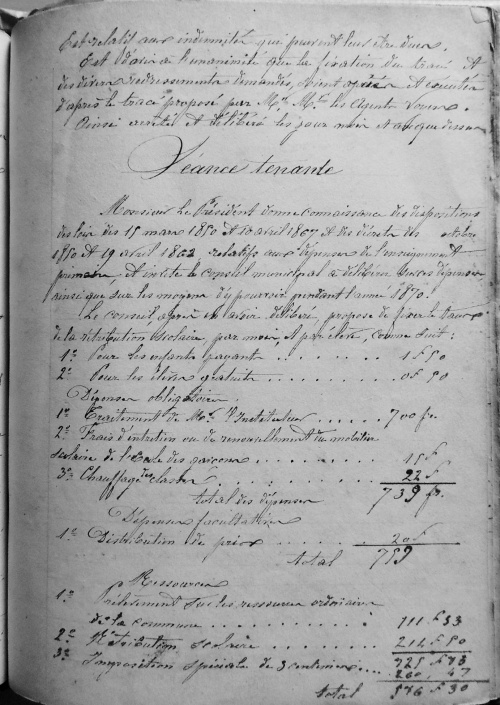 Est relatif aux indemnités qui peuvent leur être dues.
Est d'avis à l'unanimité que la fixation du tracé et
des divers redressements demandés, soient opérés et exécutés
d'après le tracé proposé par Mr. Mrs. les Agents Voyers.
Ainsi arrêté et délibéré les jour mois et an que dessus
Séance tenante
Monsieur Le Président donne connaissance des dispositions
des lois des 15 mars 1850 et 10 avril 1867 et des décrets des octobre
1850 et 19 avril 1862 relatifs aux dépenses de l'enseignement
primaire, et invite le Conseil municipal à délibérer sur ces dépenses,
ainsi que sur les moyens d'y pourvoir pendant l'année 1870.
Le Conseil, après en avoir délibéré, propose de fixer le taux
de la rétribution scolaire, par mois, et par élève, comme suit :
1º Pour les enfants payant . . . . . . . . 1f50
2º Pour les élèves gratuits . . . . . . . . 0f90
Dépenses obligatoires.
1º Traitement de Mr. l'Instituteur . . . . . 700 fr.
2º Frais d'entretien ou de renouvellement du mobilier
scolaire de l'école des garçons . . . . . . . . 15 f
3º Chauffage des classes . . . . . . . . 22 f
total des dépenses 739 fr.
Dépenses facultatives
1º Distribution de prix . . . . . . . . 20 f
total 759
Ressources
1º Prélèvement sur les ressources ordinaires
de la commune . . . . . . . . 111 f 33
2º Rétribution scolaire . . . . . . . . 214 f 50
3º Imposition spéciale de 3 centimes . . . . 260, 47
total 576 f 30